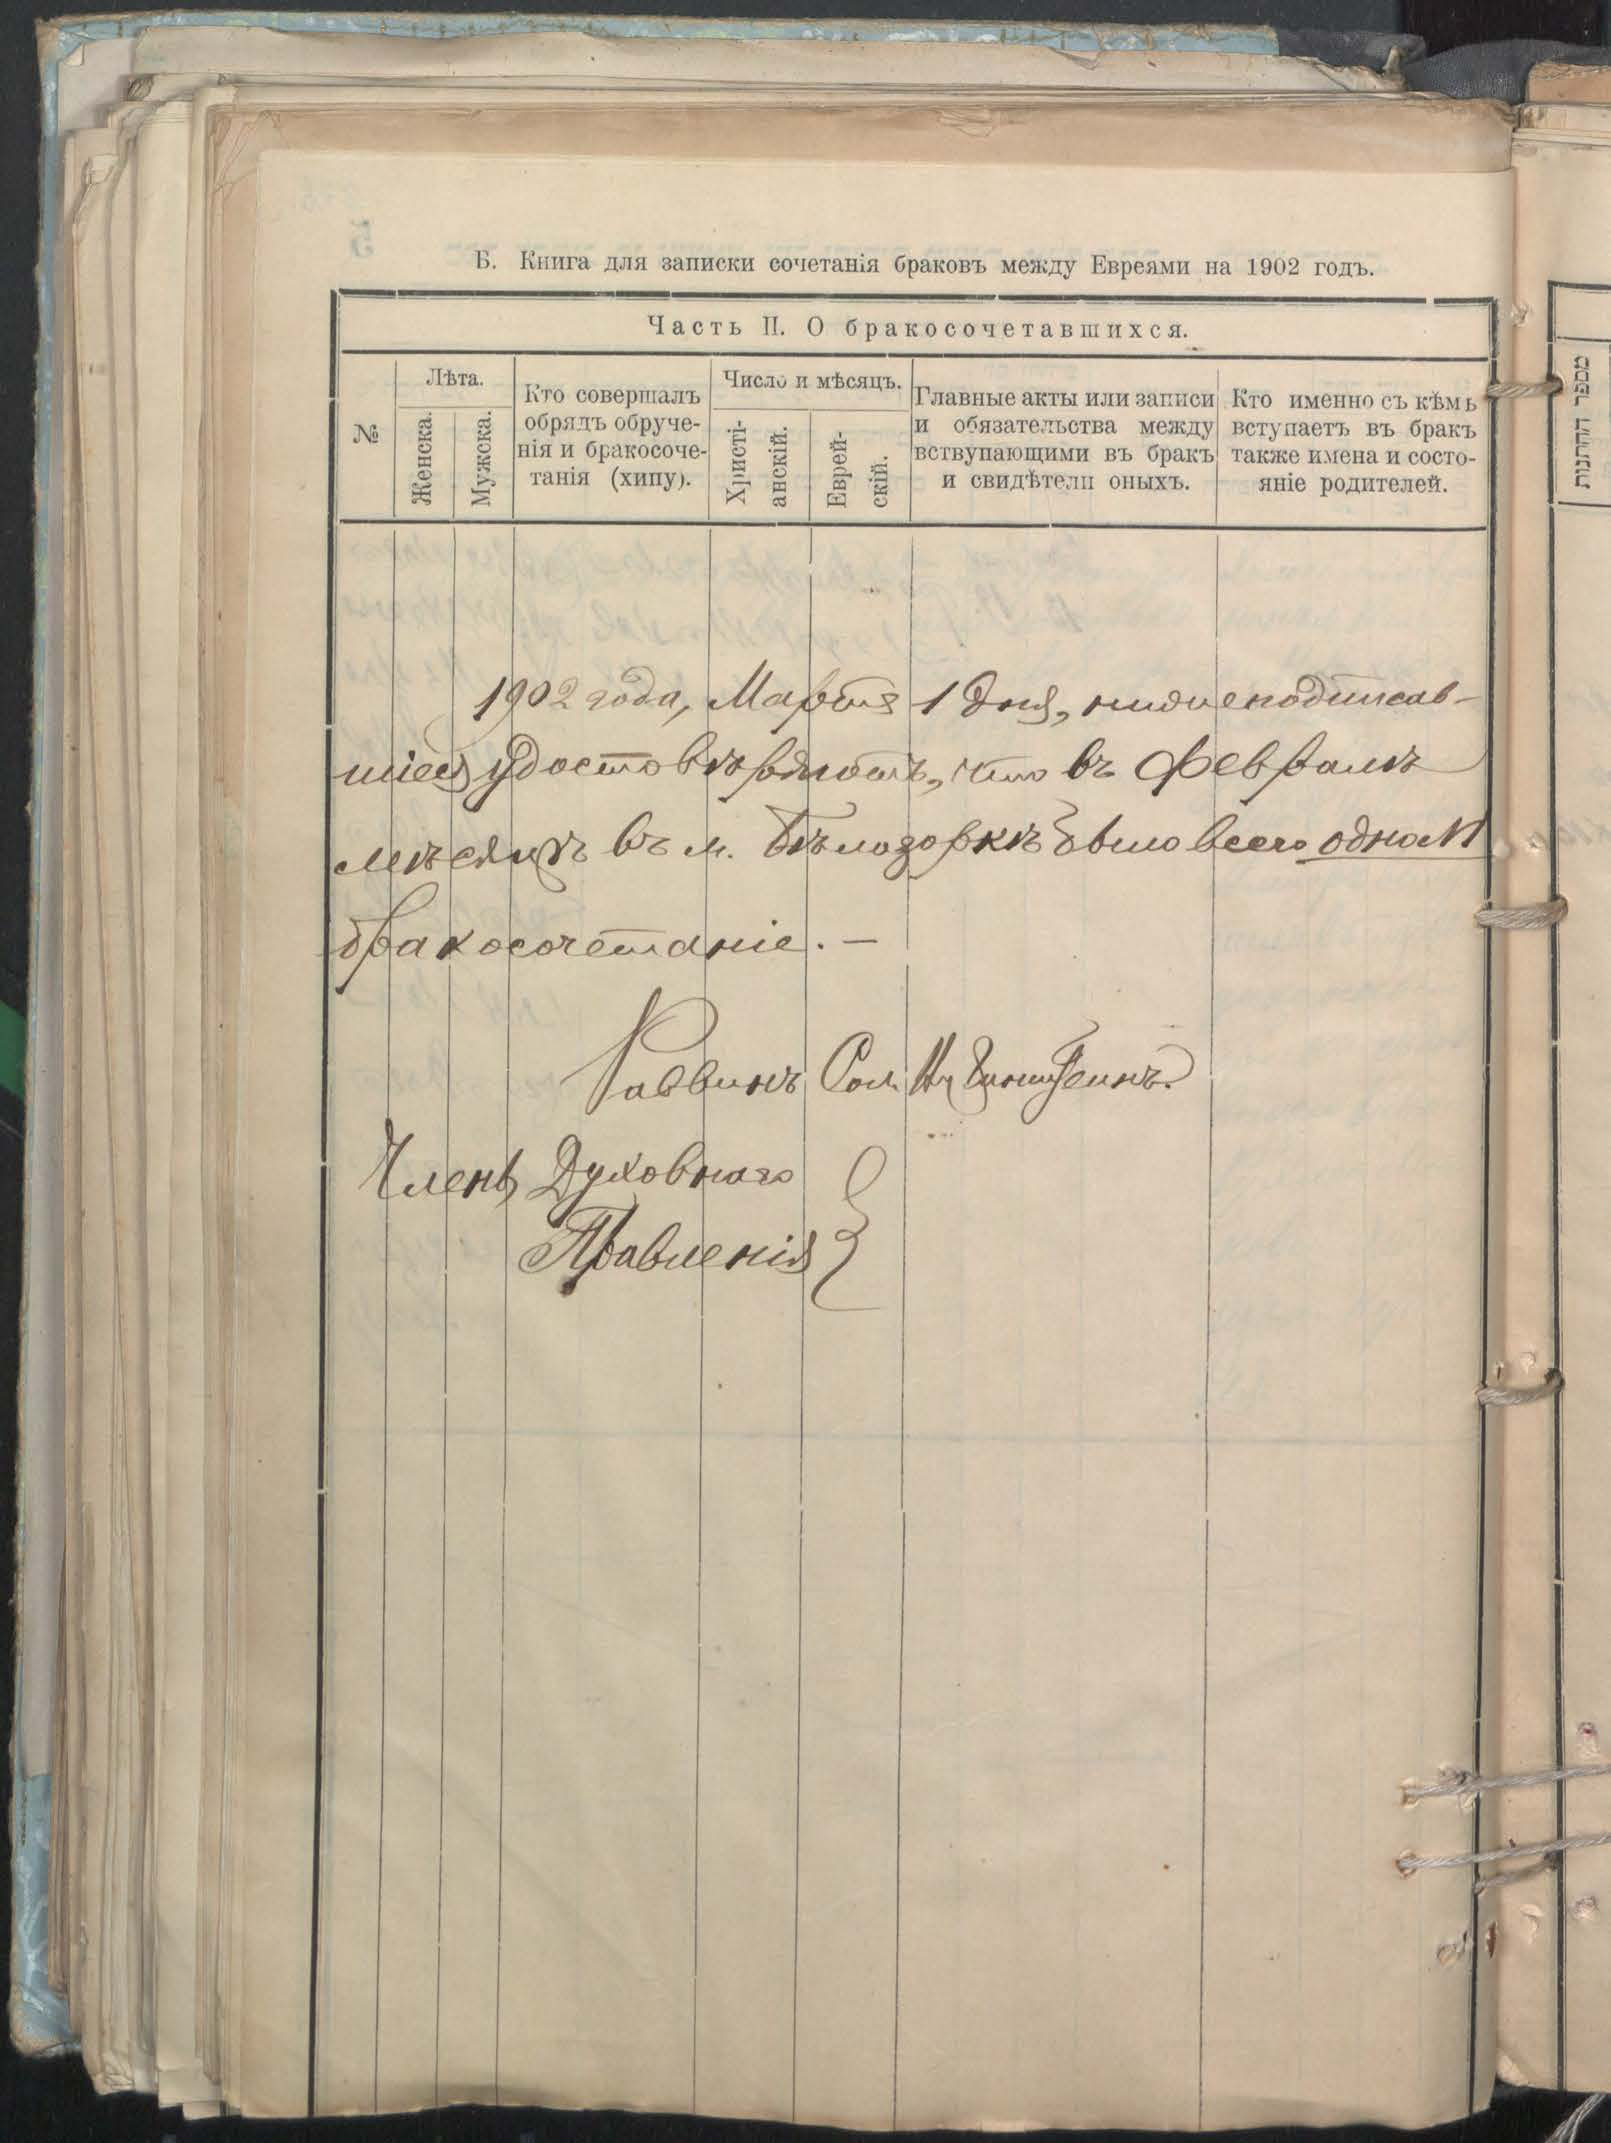 Б. Книга для записки сочетанія браковъ между Евреями на 1902 годъ.
Часть II. О бракосочетавшихся.
№
Лѣта.
Женска.
Мужска.
Кто совершалъ
обрядъ обруче-
нія и бракосоче-
танія (хипу).
Число и мѣсяцъ.
Христі-
анскій.
Еврей-
скій.
Главные акты или записи
и обязательства между
вствупающими въ бракъ
и свидѣтели оныхъ.
Кто именно съ кѣмъ
вступаетъ въ бракъ
также имена и состо-
яніе родителей.
1902 года, Марта 1 дня, нижеподписав-
шіеся удостовѣряютъ, что въ Февралѣ
мѣсяцѣ въ м. Бѣлозоркѣ было всего одно №1
бракосочетаніе. —
Раввинъ Сол.
Члены Духовнаго
Правленія
מספר החתנות